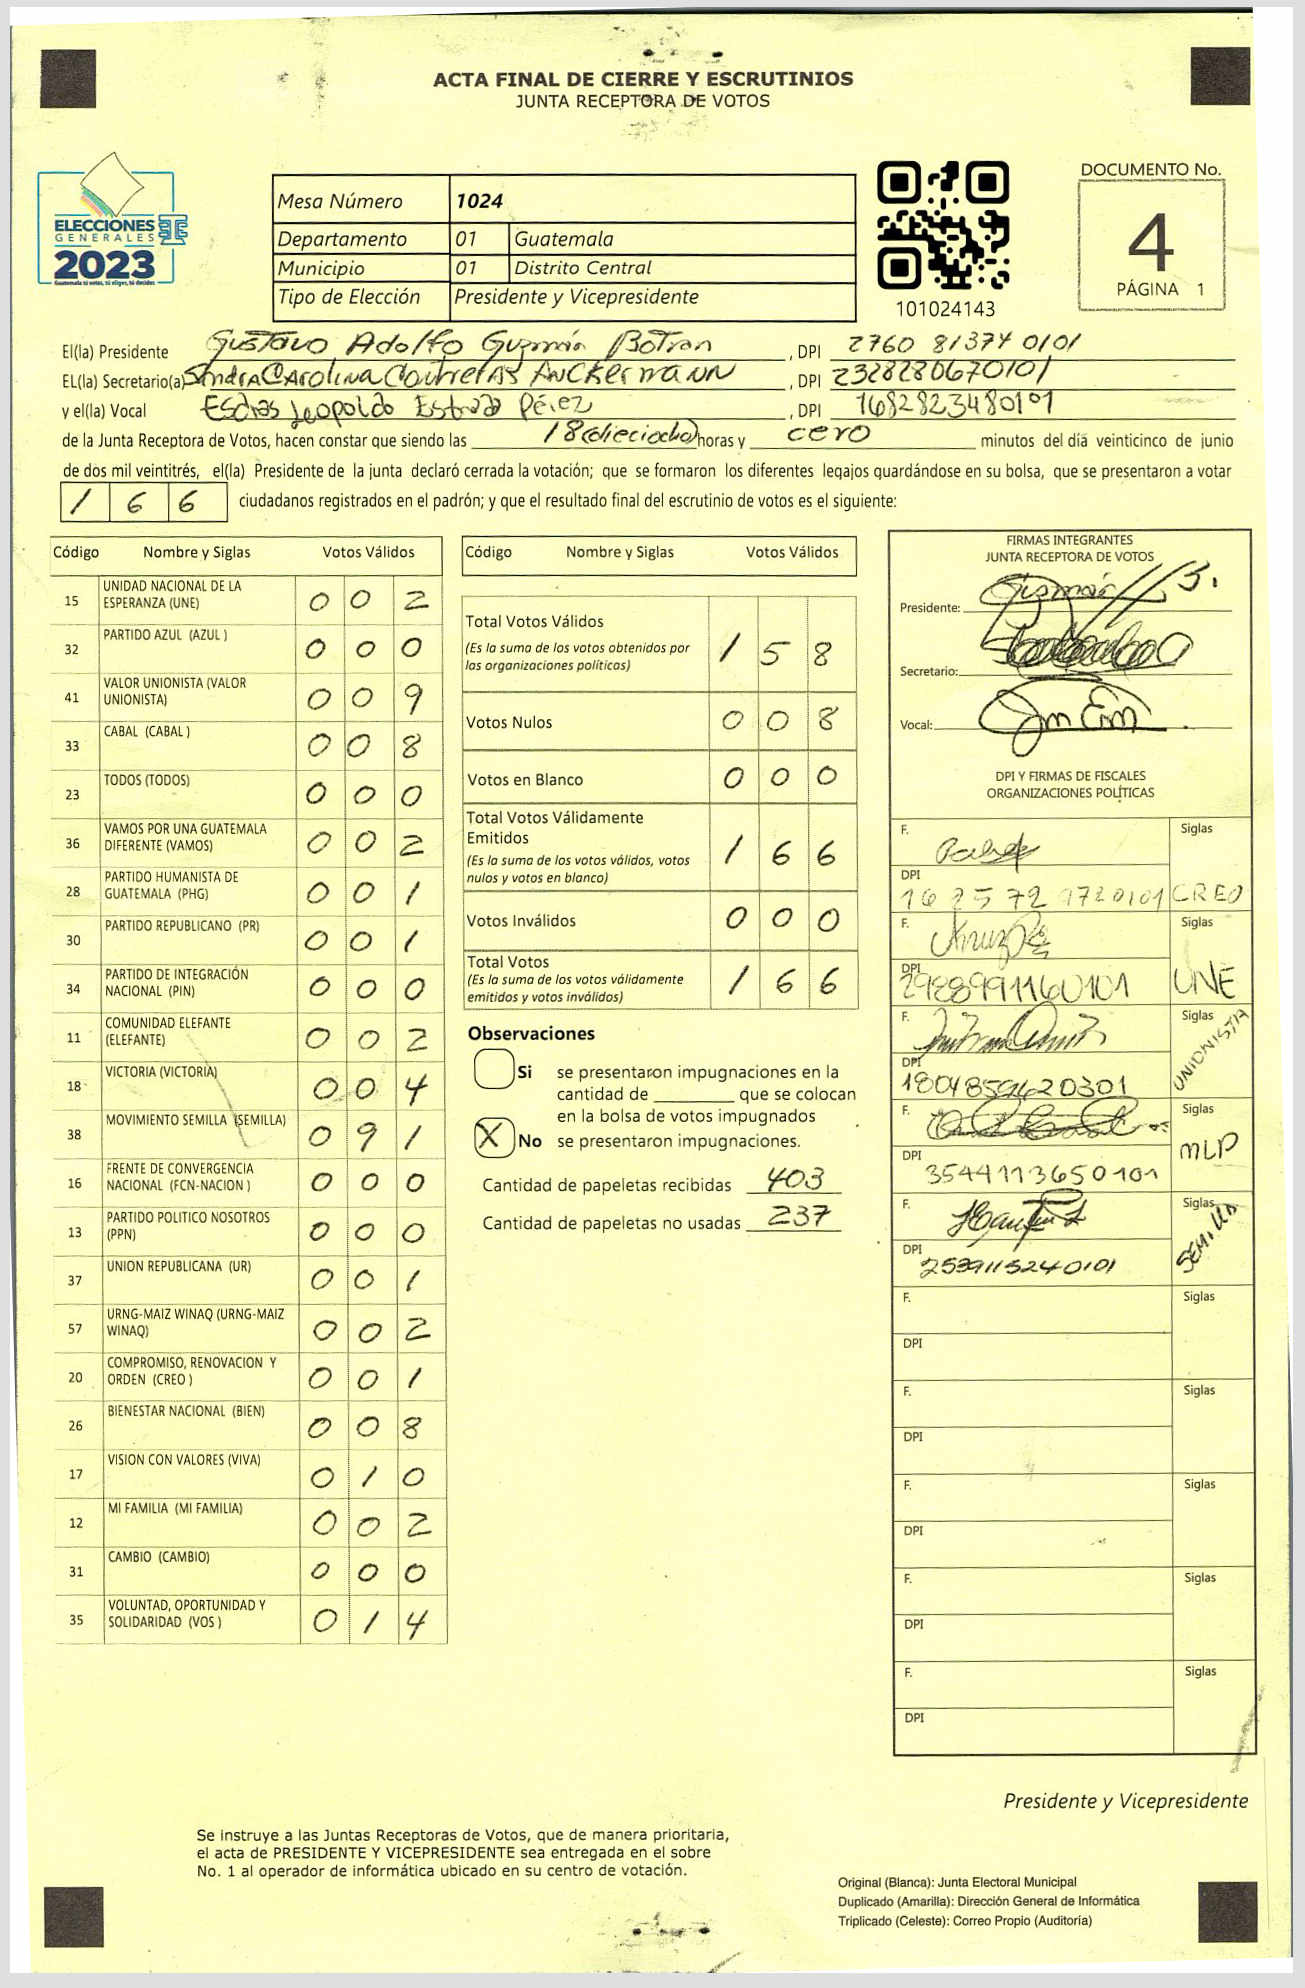 ACTA FINAL DE CIERRE Y ESCRUTINIOS
JUNTA RECEPTORA DE VOTOS
ELECCIONES
GENERALES
2023
Guatemala tú votas, tú eliges, tú decides
Mesa Número 1024
Departamento 01 Guatemala
Municipio 01 Distrito Central
Tipo de Elección Presidente y Vicepresidente
101024143
DOCUMENTO No.
4
PÁGINA 1
El(la) Presidente Gustavo Adolfo Guzmán Botran , DPI 2760 81374 0101
EL(la) Secretario(a) Sandra Carolina Contreras Anckermann , DPI 2328280670101
y el(la) Vocal Esdras Leopoldo Estrada Pérez , DPI 1682823480101
de la Junta Receptora de Votos, hacen constar que siendo las 18(dieciocho) horas y cero minutos del día veinticinco de junio
de dos mil veintitrés, el(la) Presidente de la junta declaró cerrada la votación; que se formaron los diferentes legajos guardándose en su bolsa, que se presentaron a votar
166 ciudadanos registrados en el padrón; y que el resultado final del escrutinio de votos es el siguiente:
Código Nombre y Siglas Votos Válidos
15 UNIDAD NACIONAL DE LA
ESPERANZA (UNE) 0 0 2
32 PARTIDO AZUL (AZUL ) 0 0 0
41 VALOR UNIONISTA (VALOR
UNIONISTA) 0 0 9
33 CABAL (CABAL ) 0 0 8
23 TODOS (TODOS) 0 0 0
36 VAMOS POR UNA GUATEMALA
DIFERENTE (VAMOS) 0 0 2
28 PARTIDO HUMANISTA DE
GUATEMALA (PHG) 0 0 1
30 PARTIDO REPUBLICANO (PR) 0 0 1
34 PARTIDO DE INTEGRACIÓN
NACIONAL (PIN) 0 0 0
11 COMUNIDAD ELEFANTE
(ELEFANTE) 0 0 2
18 VICTORIA (VICTORIA) 0 0 4
38 MOVIMIENTO SEMILLA (SEMILLA) 0 9 1
16 FRENTE DE CONVERGENCIA
NACIONAL (FCN-NACION ) 0 0 0
13 PARTIDO POLITICO NOSOTROS
(PPN) 0 0 0
37 UNION REPUBLICANA (UR) 0 0 1
57 URNG-MAIZ WINAQ (URNG-MAIZ
WINAQ) 0 0 2
20 COMPROMISO, RENOVACION Y
ORDEN (CREO ) 0 0 1
26 BIENESTAR NACIONAL (BIEN) 0 0 8
17 VISION CON VALORES (VIVA) 0 1 0
12 MI FAMILIA (MI FAMILIA) 0 0 2
31 CAMBIO (CAMBIO) 0 0 0
35 VOLUNTAD, OPORTUNIDAD Y
SOLIDARIDAD (VOS ) 0 1 4
Código Nombre y Siglas Votos Válidos
Total Votos Válidos
(Es la suma de los votos obtenidos por
las organizaciones políticas) 1 5 8
Votos Nulos 0 0 8
Votos en Blanco 0 0 0
Total Votos Válidamente
Emitidos
(Es la suma de los votos válidos, votos
nulos y votos en blanco) 1 6 6
Votos Inválidos 0 0 0
Total Votos
(Es la suma de los votos válidamente
emitidos y votos inválidos) 1 6 6
Observaciones
Si se presentaron impugnaciones en la
cantidad de ________ que se colocan
en la bolsa de votos impugnados
X No se presentaron impugnaciones.
Cantidad de papeletas recibidas 403
Cantidad de papeletas no usadas 237
FIRMAS INTEGRANTES
JUNTA RECEPTORA DE VOTOS
Presidente:
Secretario:
Vocal:
DPI Y FIRMAS DE FISCALES
ORGANIZACIONES POLÍTICAS
F. Siglas
DPI
162572 9720101 CREO
F. Siglas
DPI
2928991160101 UNE
F. Siglas
DPI
1804859620301 UNIONISTA
F. Siglas
DPI
3544113650101 MLP
F. Siglas
DPI
2539115240101 SEMILLA
F. Siglas
DPI
F. Siglas
DPI
F. Siglas
DPI
F. Siglas
DPI
F. Siglas
DPI
Presidente y Vicepresidente
Se instruye a las Juntas Receptoras de Votos, que de manera prioritaria,
el acta de PRESIDENTE Y VICEPRESIDENTE sea entregada en el sobre
No. 1 al operador de informática ubicado en su centro de votación.
Original (Blanca): Junta Electoral Municipal
Duplicado (Amarilla): Dirección General de Informática
Triplicado (Celeste): Correo Propio (Auditoría)